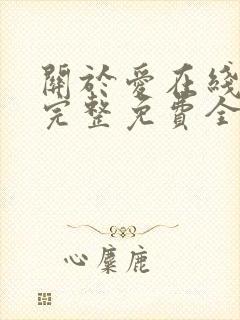 關於愛在綫
完整免費全
心麋鹿